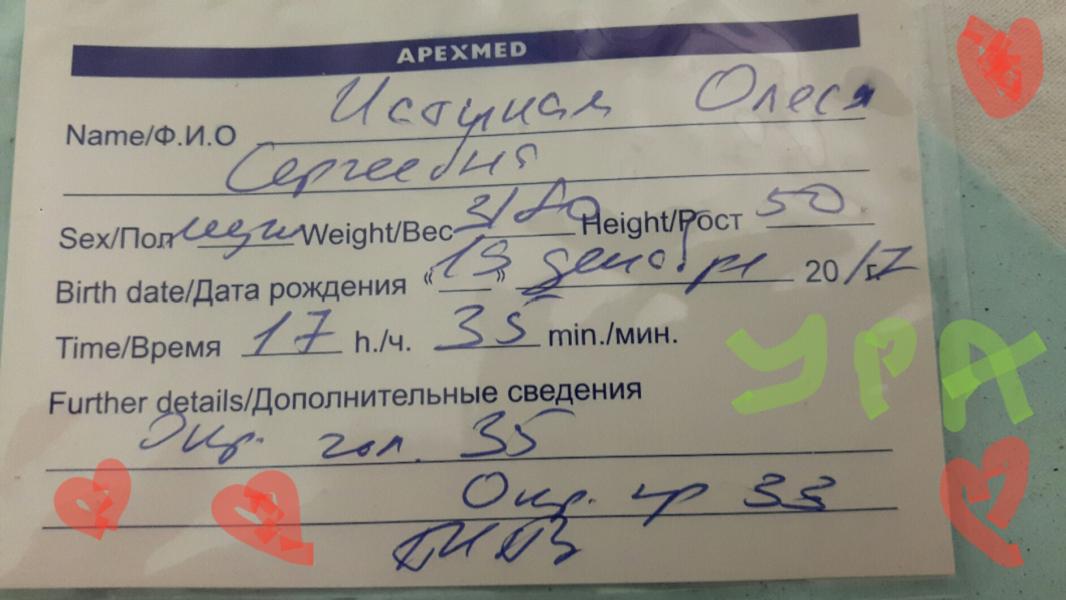 APEXMED
Name/Ф.И.О Олеся
Сергеевна
Sex/Пол Weight/Вес 3180 Height/Рост 50
Birth date/Дата рождения «13» декабря 20 17 г.
Time/Время 17 h./ч. 35 min./мин.
УРА
Further details/Дополнительные сведения
Окр. гол. 35
Окр. гр 33